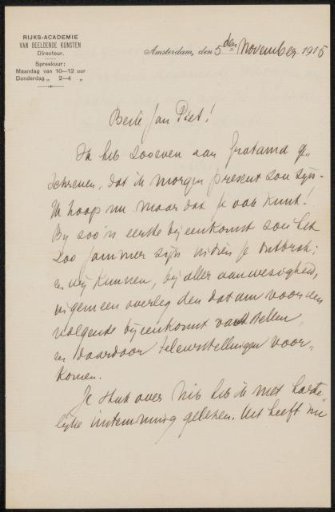 RIJKS-ACADEMIE
VAN BEELDENDE KUNSTEN
Directeur.
Spreekuur:
Maandag van 10—12 uur
Donderdag „ 2—4 „
Amsterdam, den 5den November 1915
Beste Jan Piet!
Ik heb zooeven aan Gratama ge-
schreven, dat ik morgen present zou zijn.
Ik hoop nu maar dat je ook kunt!
Bij zoo'n eerste bijeenkomst zou het
zoo jammer zijn indien je ontbrak;
en wij kunnen, bij aller aanwezigheid,
in gemeen overleg den datum voor den
volgende bijeenkomst vaststellen
en daardoor teleurstellingen voor-
komen.
Je stuk over heb ik met harte-
lijke instemming gelezen. Het heeft me